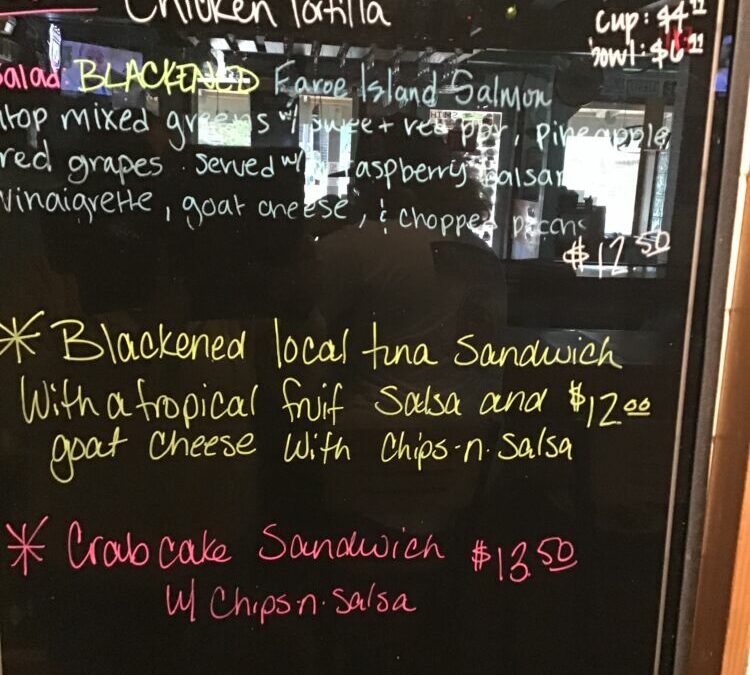 Chicken Tortilla
cup: $4
bowl: $6
salad: BLACKENED Faroe Island Salmon
atop mixed greens w/ sweet red ppr, pineapple,
red grapes. served w/ raspberry balsam
vinaigrette, goat cheese, & chopped pecans
$12.50
* Blackened local tuna Sandwich
With a tropical fruit Salsa and $12.00
goat cheese with Chips-n-Salsa
* Crab cake Sandwich $13.50
w/ Chips-n-Salsa